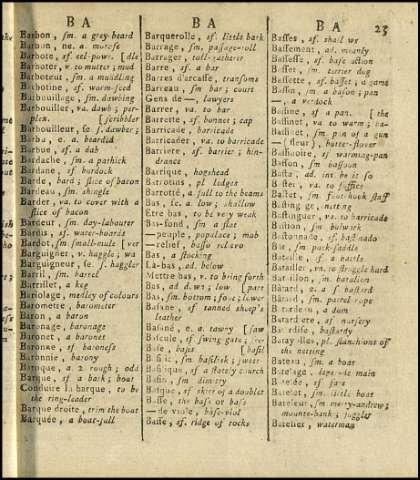 B A
Barbon, ſm. a grey-beard
Barbon, ne. a. moroſe
Barbote, ſf. eel-powt [dle
Barboter, v. to mutter; mud
Barboteur, ſm. a muddling
Barbotine, ſf. worm-ſeed
Barbouillage, ſm. dawbing
Barbouiller, va. dawb; per-
plex. [ſcribbler
Barbouilleur, ſe. ſ. dawber;
Barbu, e. a. beardid
Barbue, ſf. a dab
Bardache, ſm. a pathick
Bardane, ſf. burdock
Barde, bard; ſlice of bacon
Bardeau, ſm. ſhingle
Barder, va. to cover with a
ſlice of bacon
Bardeur, ſm. day-labourer
Bardis, ſf. water-boards
Bardot, ſm. ſmall-mule [ver
Barguigner, v. haggle; wa
Barguigneur, ſe. ſ. haggler
Baril, ſm. barrel
Barillet, a keg
Bariolage, medley of colours
Barometre, barometer
Baron, a baron
Baronage, baronage
Baronet, a baronet
Baronne, ſf. baroneſs
Baronnie, barony
Baroque, a. 2. rough; odd
Barque, ſf. a bark; boat
Conduire la barque, to be
the ring-leader
Barque droite, trim the boat
Barquée, a boat-full
B A
Barquerolle, ſf. little bark
Barrage, ſm. paſſage-toll
Barrager, toll-gatherer
Barre, ſf. a bar
Barres d'arcaſſe, tranſoms
Barreau, ſm. bar; court
Gens de —, lawyers
Barrer, va. to bar
Barrette, ſf. bonnet; cap
Barricade, barricade
Barricader, va. to barricade
Barriere, ſf. barrier; hin-
drance
Barrique, hogſhead
Barrotins, pl. ledges
Barrotté, a. full to the beams
Bas, ſe. a. low; ſhallow
Etre bas, to be very weak
Bas-fond, ſm. a flat
—peuple, populace; mob
—relief, baſſo relievo
Bas, a ſtocking
Là-bas, ad. below
Mettre bas, v. to bring forth
Bas, ad. down; low [part
Bas, ſm. bottom; foot; lower
Baſane, ſf. tanned ſheep's
leather
Baſané, e. a. tawny [ſaw
Baſcule, ſf. ſwing gate;
Baſe, baſis [baſil
Baſilic, ſm. baſiliſk; ſweet-
Baſilique, ſf. a ſtately church
Baſin, ſm. dimitty
Baſque, ſf. skirt of a doublet
Baſſe, the baſs or baſe
—de viole, baſe-viol
Baſſe, ſf. ridge of rocks
B A
23
Baſſes, ſf. ſhallows
Baſſement, ad. meanly
Baſſeſſe, ſf. baſe action
Baſſet, ſm. terrier dog
Baſſette, ſf. baſſet; a game
Baſſin, ſm. a baſon; pan
—, a wet-dock
Baſſine, ſf. a pan. [the
Baſſiner, va. to warm; ba
Baſſinet, ſm. pan of a gun
—(fleur), butter-flower
Baſſinoire, ſf. warming-pan
Baſſon, ſm. baſſoon
Baſta, ad. let be it ſo
Baſtet, ſm. foot-hook ſtaff
Baſting, meting
Baſtinguer, va. to barricade
Baſtion, ſm. bulwark
Baſtonnade, ſf. baſtinado
Bât, ſm. pack-ſaddle
Bataille, ſf. a battle
Batailler, va. to ſtruggle hard
Bataillon, ſm. batalion
Bâtard, e. a. ſ. baſtard
Bâtard, ſm. parrel-rope
Bâtardeau, a dam
Bâtardiere, ſf. nurſery
Bâtardiſe, baſtardy
Batayolles, pl. ſtanchions of
the netting
Bateau, ſm. a boat
Batelage, legerdemain
Batelée, ſf. fare
Batelet, ſm. little boat
Bateleur, ſm. merry-andrew;
mounte-bank; juggler
Batelier, waterman